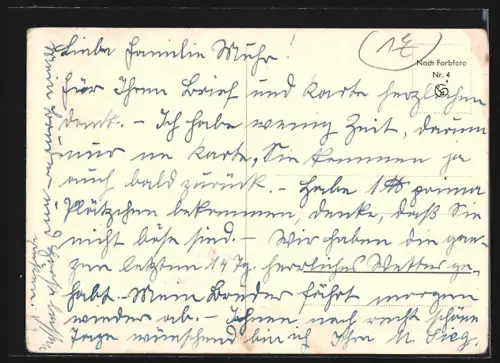 Liebe Familie Muhr!
Für Ihren Brief und Karte herzlichen
Dank. - Ich habe wenig Zeit, darum
nur ne Karte, Sie kommen ja
auch bald zurück. - Habe 1 prima
Plätzchen bekommen, denke, daß Sie
nicht böse sind. - Wir haben die gan-
zen letzten 14 Tg. herrliches Wetter ge-
habt. - Mein Bruder fährt morgen
wieder ab. - Ihnen noch recht schöne
Tage wünschend bin ich Ihre M. Sieg
Nach Farbfoto
Nr. 4